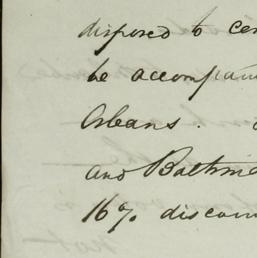 disposed to cen
be accompani
Orleans.
and Baltim
16% discoun